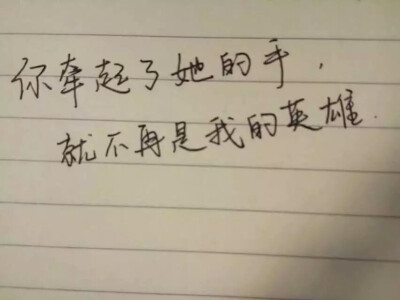 你牵起了她的手,
就不再是我的英雄.